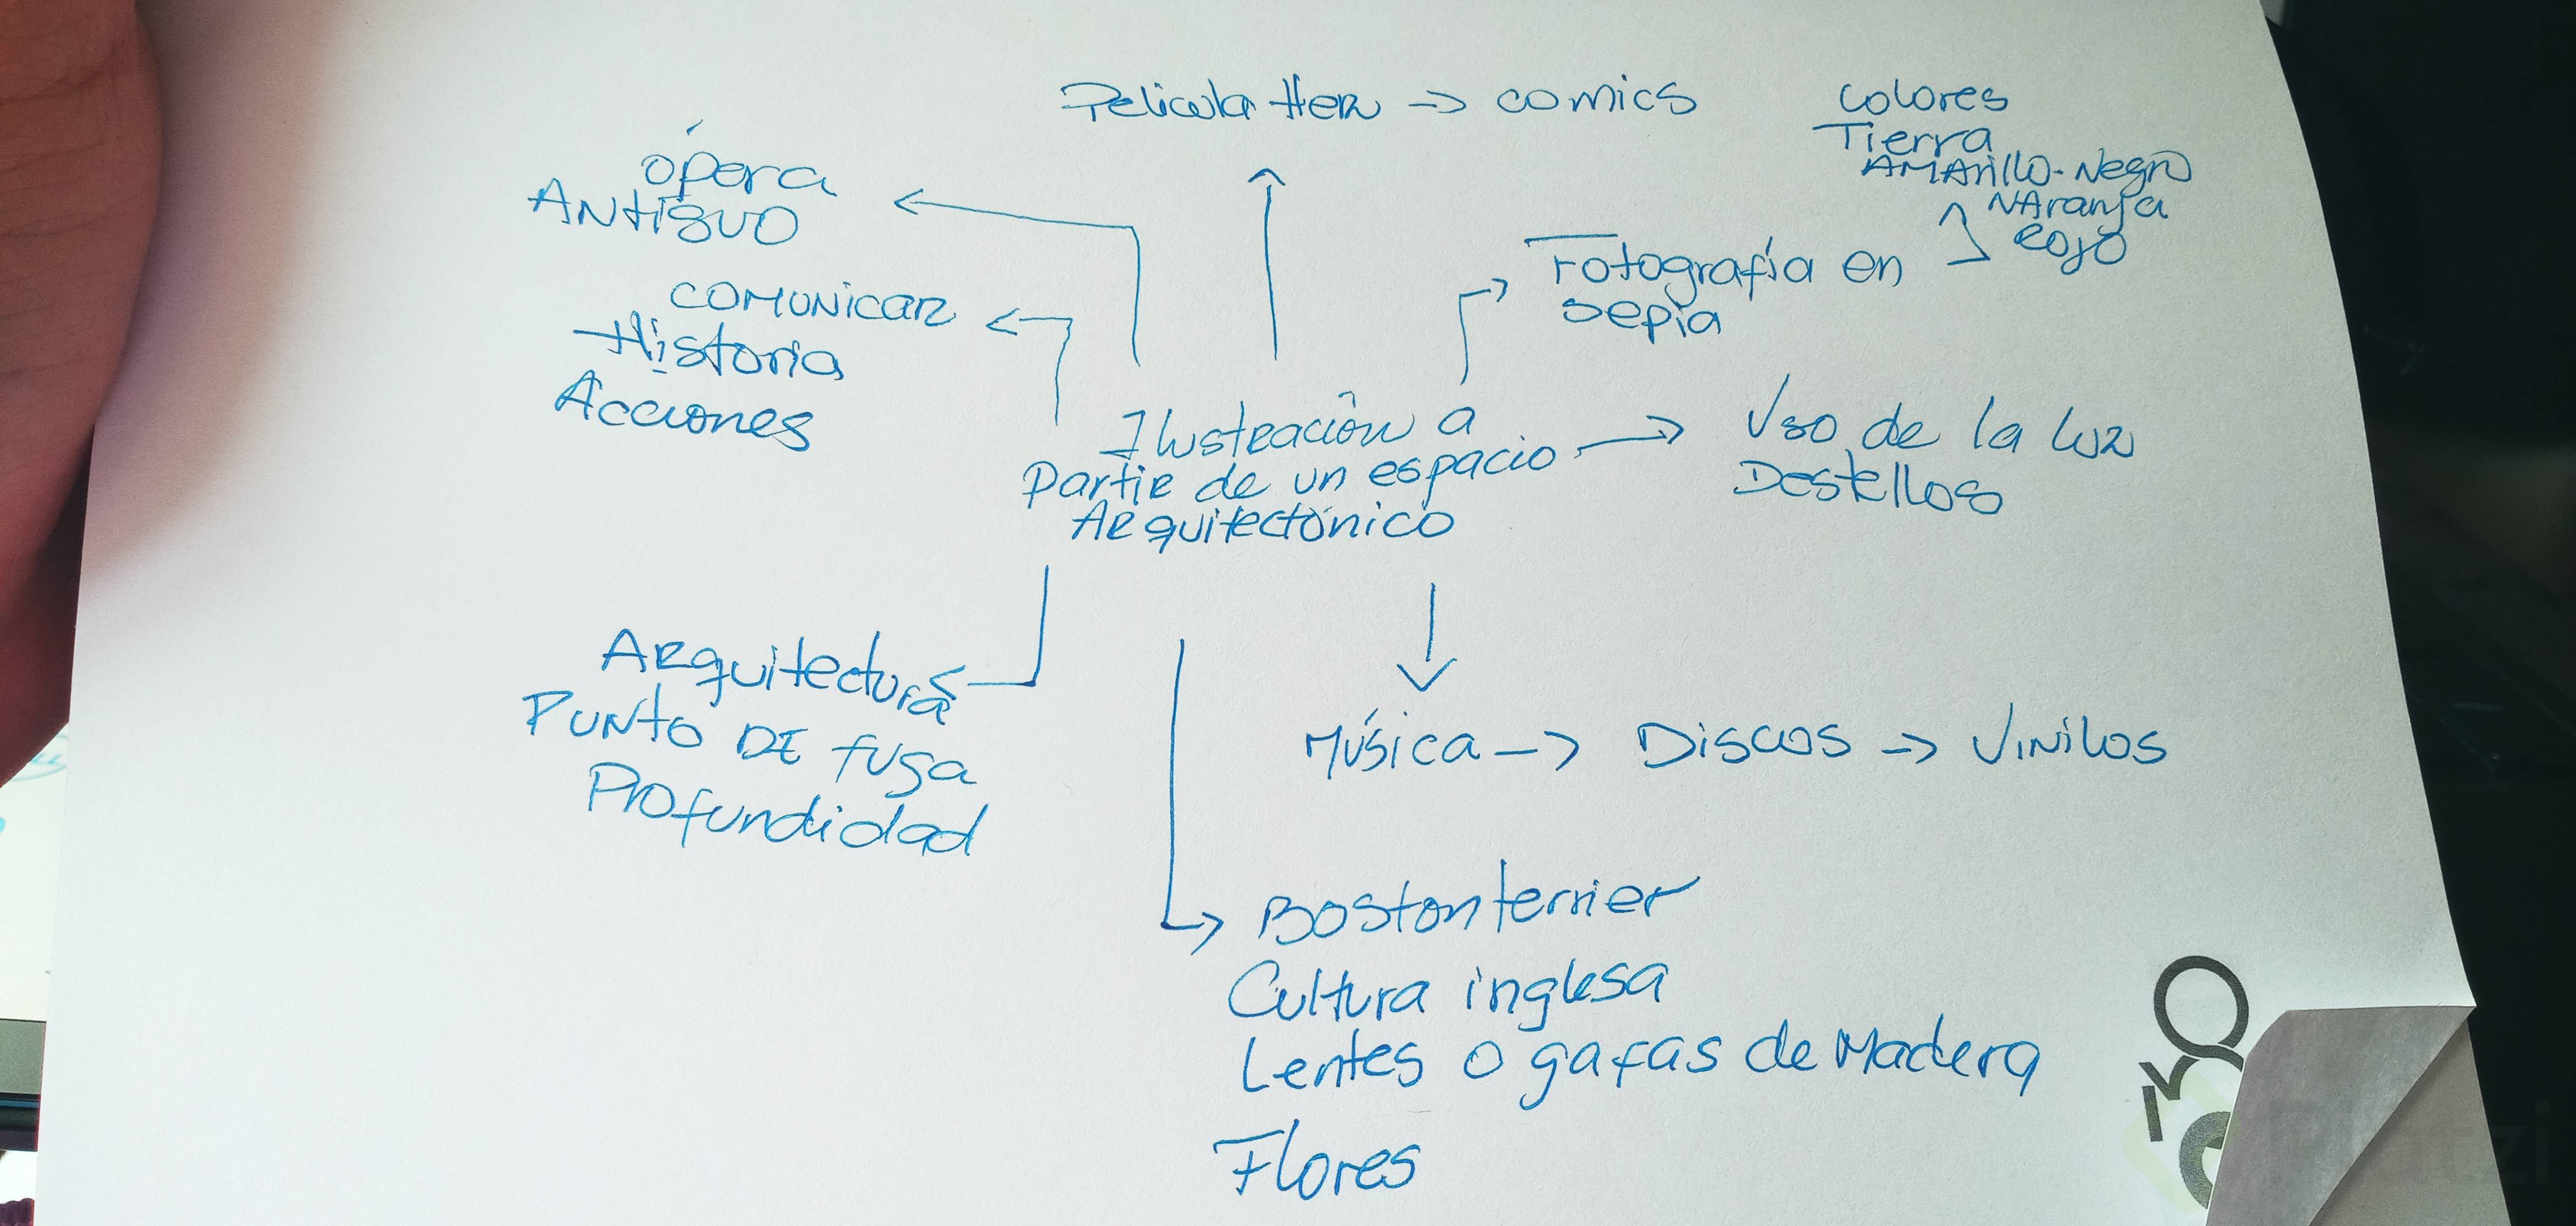 Pelicula Her → comics
Colores
Tierra
AMArillo-Negro
NAranja
Rojo
ópera
ANtiguo
Fotografía en
sepia
COMUNicaR
Historia
Acciones
Ilustración a
Partir de un espacio
Arquitectónico
Uso de la luz
Destellos
Arquitectura
PUNto DE fuga
Profundidad
Música → Discos → Vinilos
Boston terrier
Cultura inglesa
Lentes o gafas de Madera
Flores